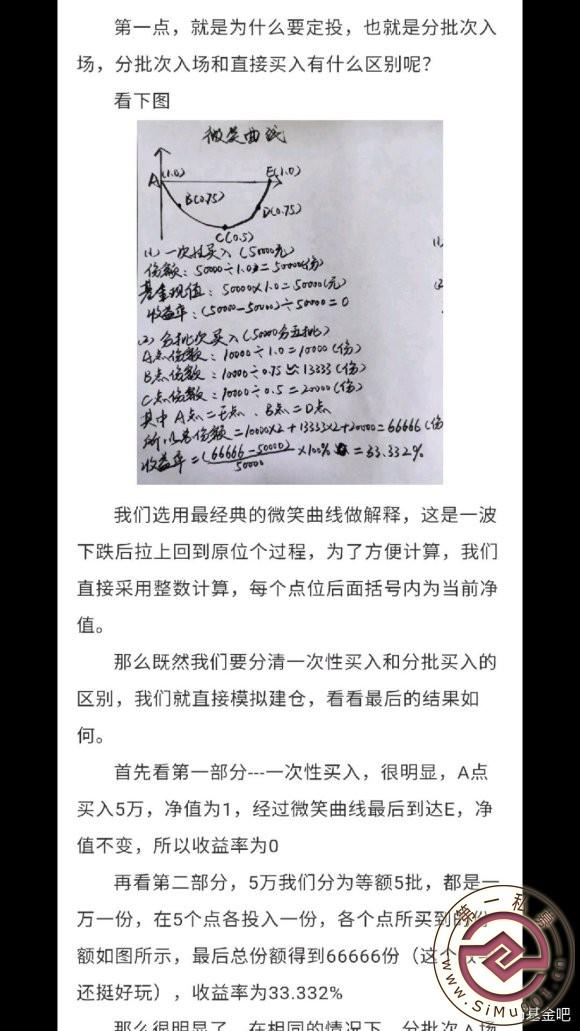 第一点，就是为什么要定投，也就是分批次入
场，分批次入场和直接买入有什么区别呢？
看下图
微笑曲线
A (1.0)
E(1.0)
B(0.75)
D(0.75)
C(0.5)
(1) 一次性买入（50000元）
份额：50000÷1.0=50000(份)
基金现值：50000×1.0=50000(元)
收益率：(50000-50000)÷50000=0
(2) 分批次买入(50000分五批)
A点份数：10000÷1.0=10000(份)
B点份数：10000÷0.75≈13333(份)
C点份数：10000÷0.5=20000(份)
其中A点=E点、B点=D点
所以总份数=10000×2+13333×2+20000=66666(份
收益率=(66666-50000)/50000×100%=33.332%
我们选用最经典的微笑曲线做解释，这是一波
下跌后拉上回到原位个过程，为了方便计算，我们
直接采用整数计算，每个点位后面括号内为当前净
值。
那么既然我们要分清一次性买入和分批买入的
区别，我们就直接模拟建仓，看看最后的结果如
何。
首先看第一部分---一次性买入，很明显，A点
买入5万，净值为1，经过微笑曲线最后到达E，净
值不变，所以收益率为0
再看第二部分，5万我们分为等额5批，都是一
万一份，在5个点各投入一份，各个点所买到的份
额如图所示，最后总份额得到66666份（这个
还挺好玩），收益率为33.332%
那么很明显了，在相同的情况下，分批次入场
第一私募
www.SiMu
基金吧